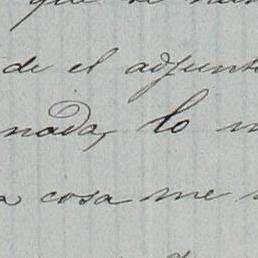 que se
de el adjunt
nada, lo
cosa me